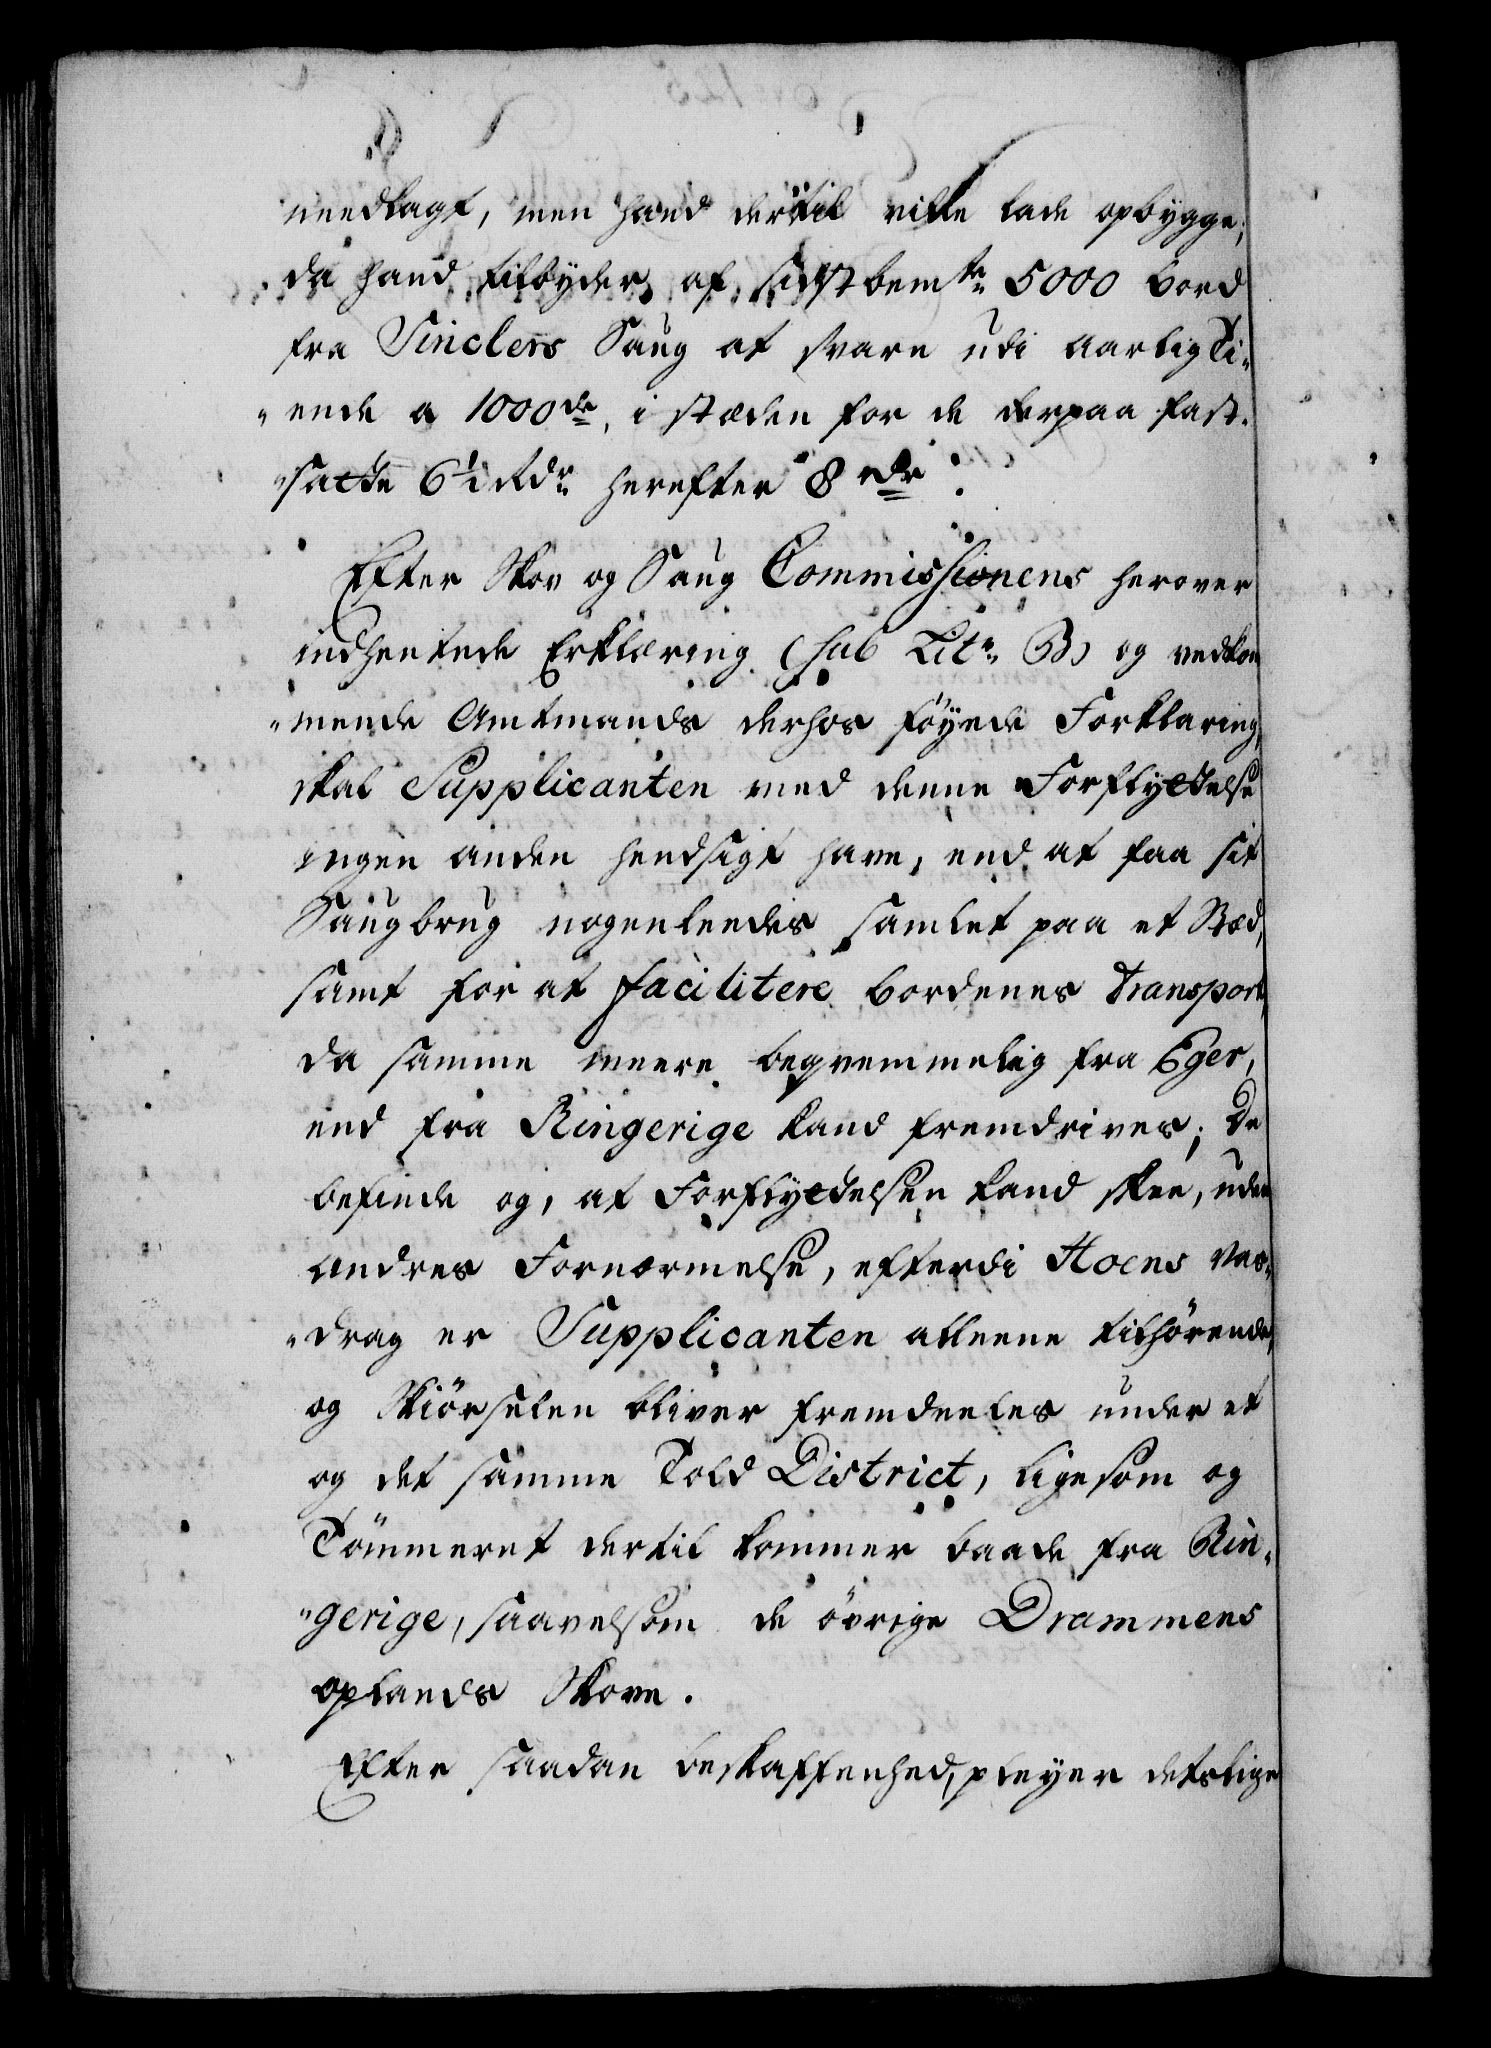 needlagt, men hand dertil ville lade opbygge;
da hand tilbyder, af sidstbem:te 5000 bord
fra Sinclers Saug at svare udi aarlig Ti-
-ende a 1000de, i stæden for de derpaa fast-
satte 6½ Rdr herefter 8 rdr.
Efter Skov og Saug Commissionens herover
indhentede Erklæring (sub Litr. B) og vedkom-
-mende Amtmands derhos föyede Forklaring,
skal Supplicanten med denne Forflyttelse
ingen anden hensigt have, end at faa sit
Saugbrug nogenleedes samlet paa et Stæd,
samt for at facilitere bordenes Transport,
da samme meere beqvemmelig fra Eger,
end fra Ringerige kand fremdrives; De
befinde og, at Forflyttelsen kand skee, uden
andres Fornærmelse, efterdi Hoens Vas-
-drag er Supplicanten alleene tilhörende,
og Skiörselen bliver fremdeeles under et
og det samme Told District, ligesom og
Tömmeret dertil kommer baade fra Rin-
-gerige, saavelsom de övrige Drammens
oplands Skove.
Efter saadan beskaffenhed, pleyer detslige